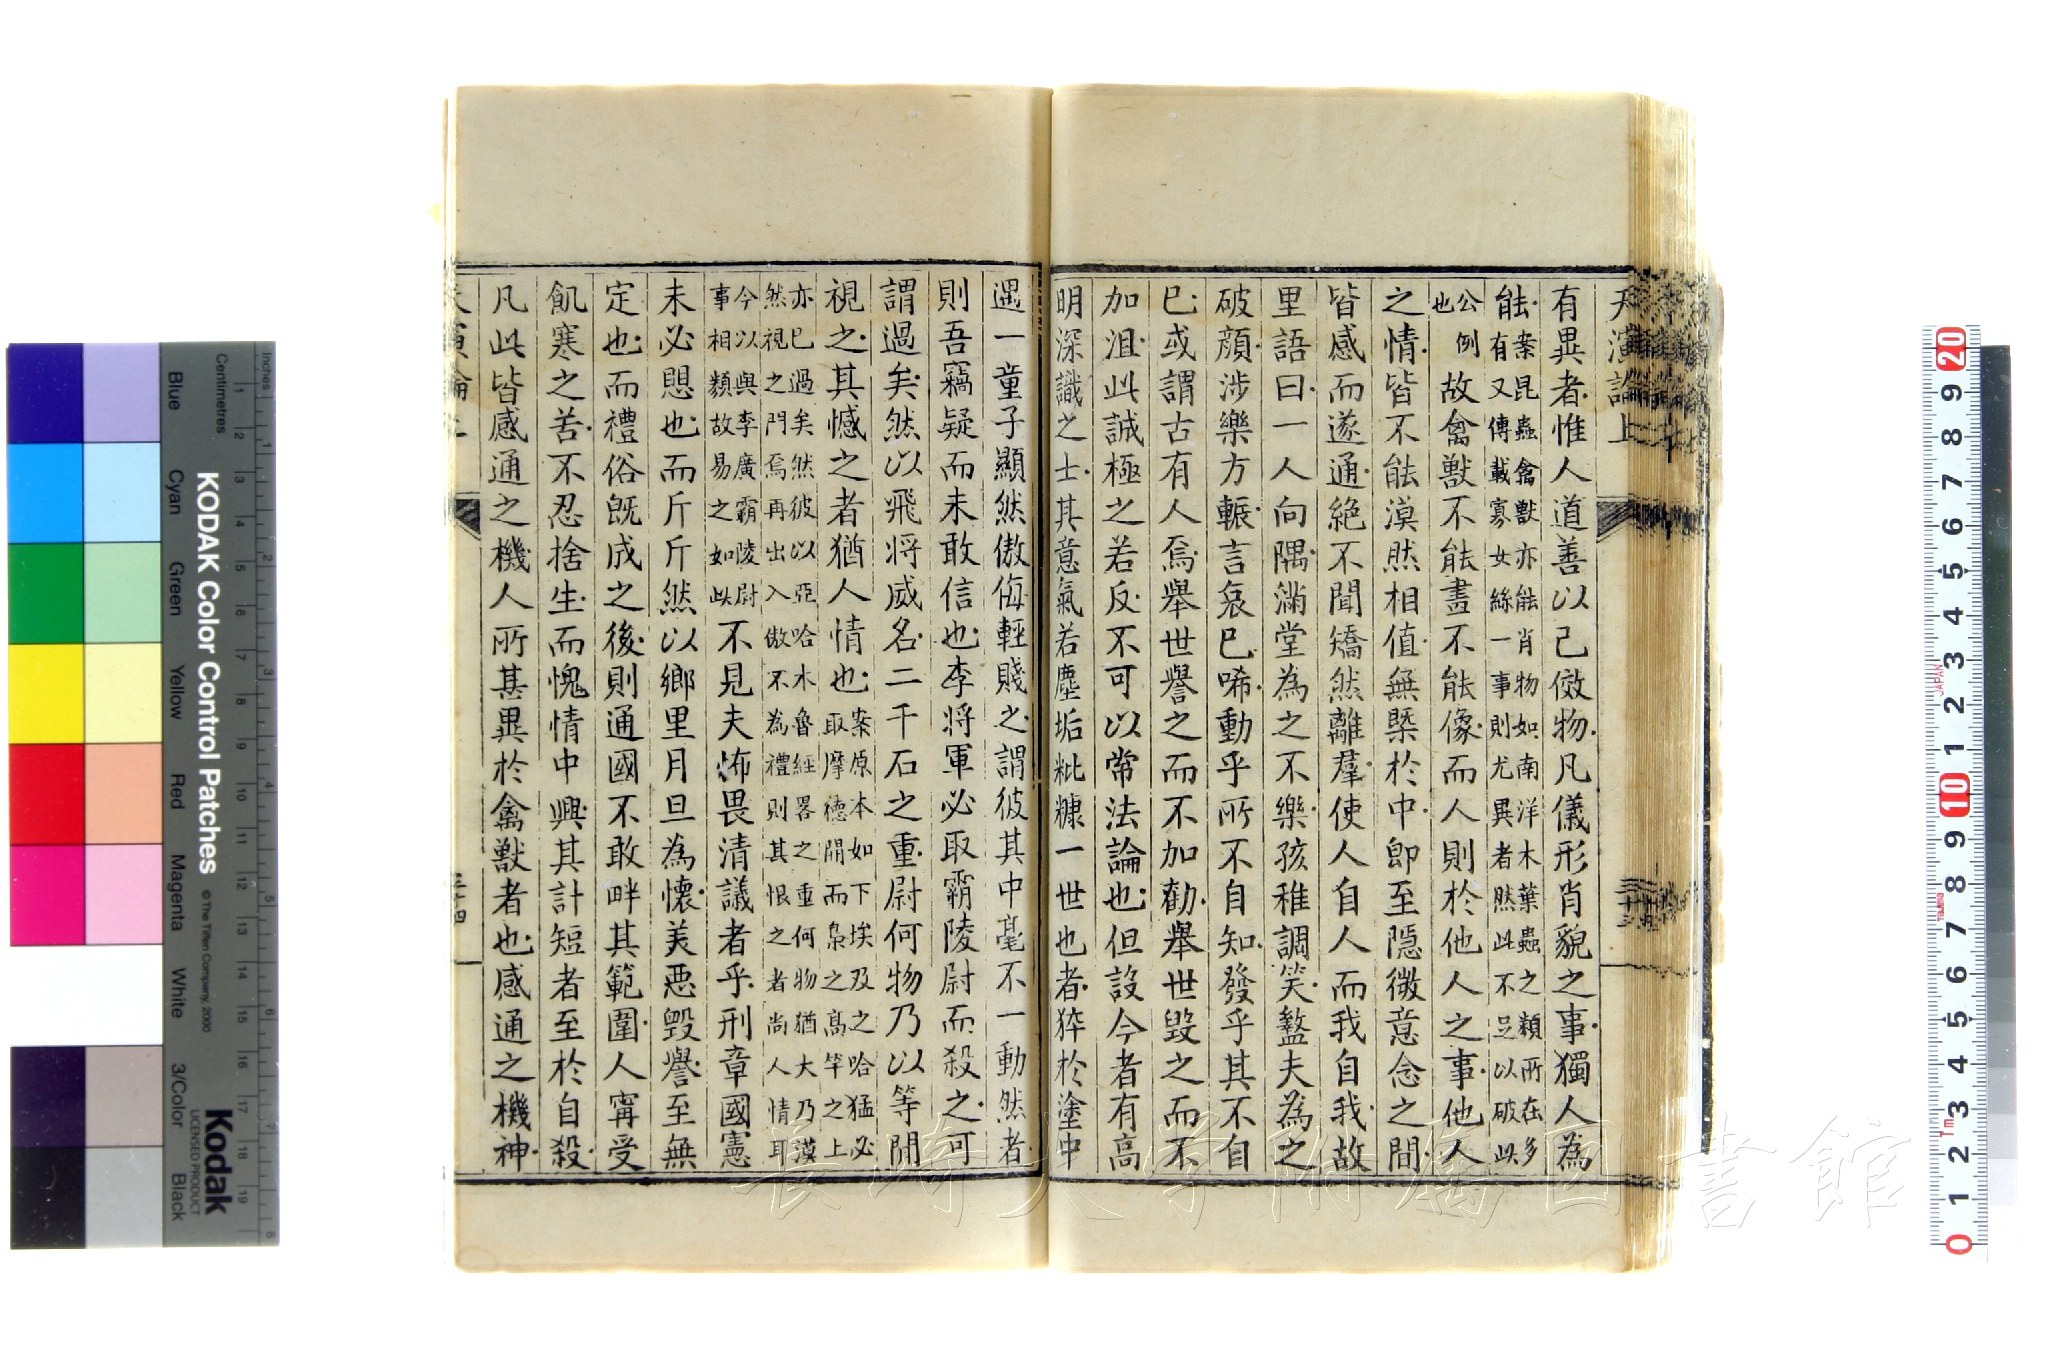 天演論上
有異者惟人道善以己傚物凡儀形肖貌之事獨人為
能案昆蟲禽獸亦能肖物如南洋木葉蟲之類所在多有又傳載寡女絲一事則尤異者然此不足以破此
公例也故禽獸不能畫不能像而人則於他人之事他人
之情皆不能漠然相值無槩於中即至隱微意念之間
皆感而遂通絶不聞矯然離羣使人自人而我自我故
里語曰一人向隅滿堂為之不樂孩稚調笑盭夫為之
破顏涉樂方輾言哀已唏動乎所不自知發乎其不自
已或謂古有人焉舉世譽之而不加勸舉世毀之而不
加沮此誠極之若反不可以常法論也但設今者有高
明深識之士其意氣若塵垢粃糠一世也者猝於塗中
遇一童子顯然傲侮輕賤之謂彼其中毫不一動然者
則吾竊疑而未敢信也李將軍必取霸陵尉而殺之可
謂過矣然以飛將威名二千石之重尉何物乃以等閒
視之其憾之者猶人情也案原本如下埃及之哈猛必取摩德開而梟之高竿之上
亦已過矣然彼以亞哈木魯經畧之重何物猶大乃漠然視之門焉再出入傲不為禮則其恨之者尚人情耳
今以與李廣霸陵尉事相類故易之如此不見夫怖畏清議者乎刑章國憲
未必愳也而斤斤然以鄉里月旦為懷美惡毀譽至無
定也而禮俗既成之後則通國不敢畔其範圍人寧受
飢寒之苦不忍捨生而愧情中興其計短者至於自殺
凡此皆感通之機人所其異於禽獸者也感通之機神
天演論上
三十四
長崎大学附属図書館
Inches
Centimetres
KODAK Color Control Patches
© The Tiffen Company, 2000
Kodak
LICENSED PRODUCT
Blue
Cyan
Green
Yellow
Red
Magenta
White
3/Color
Black
JAPAN